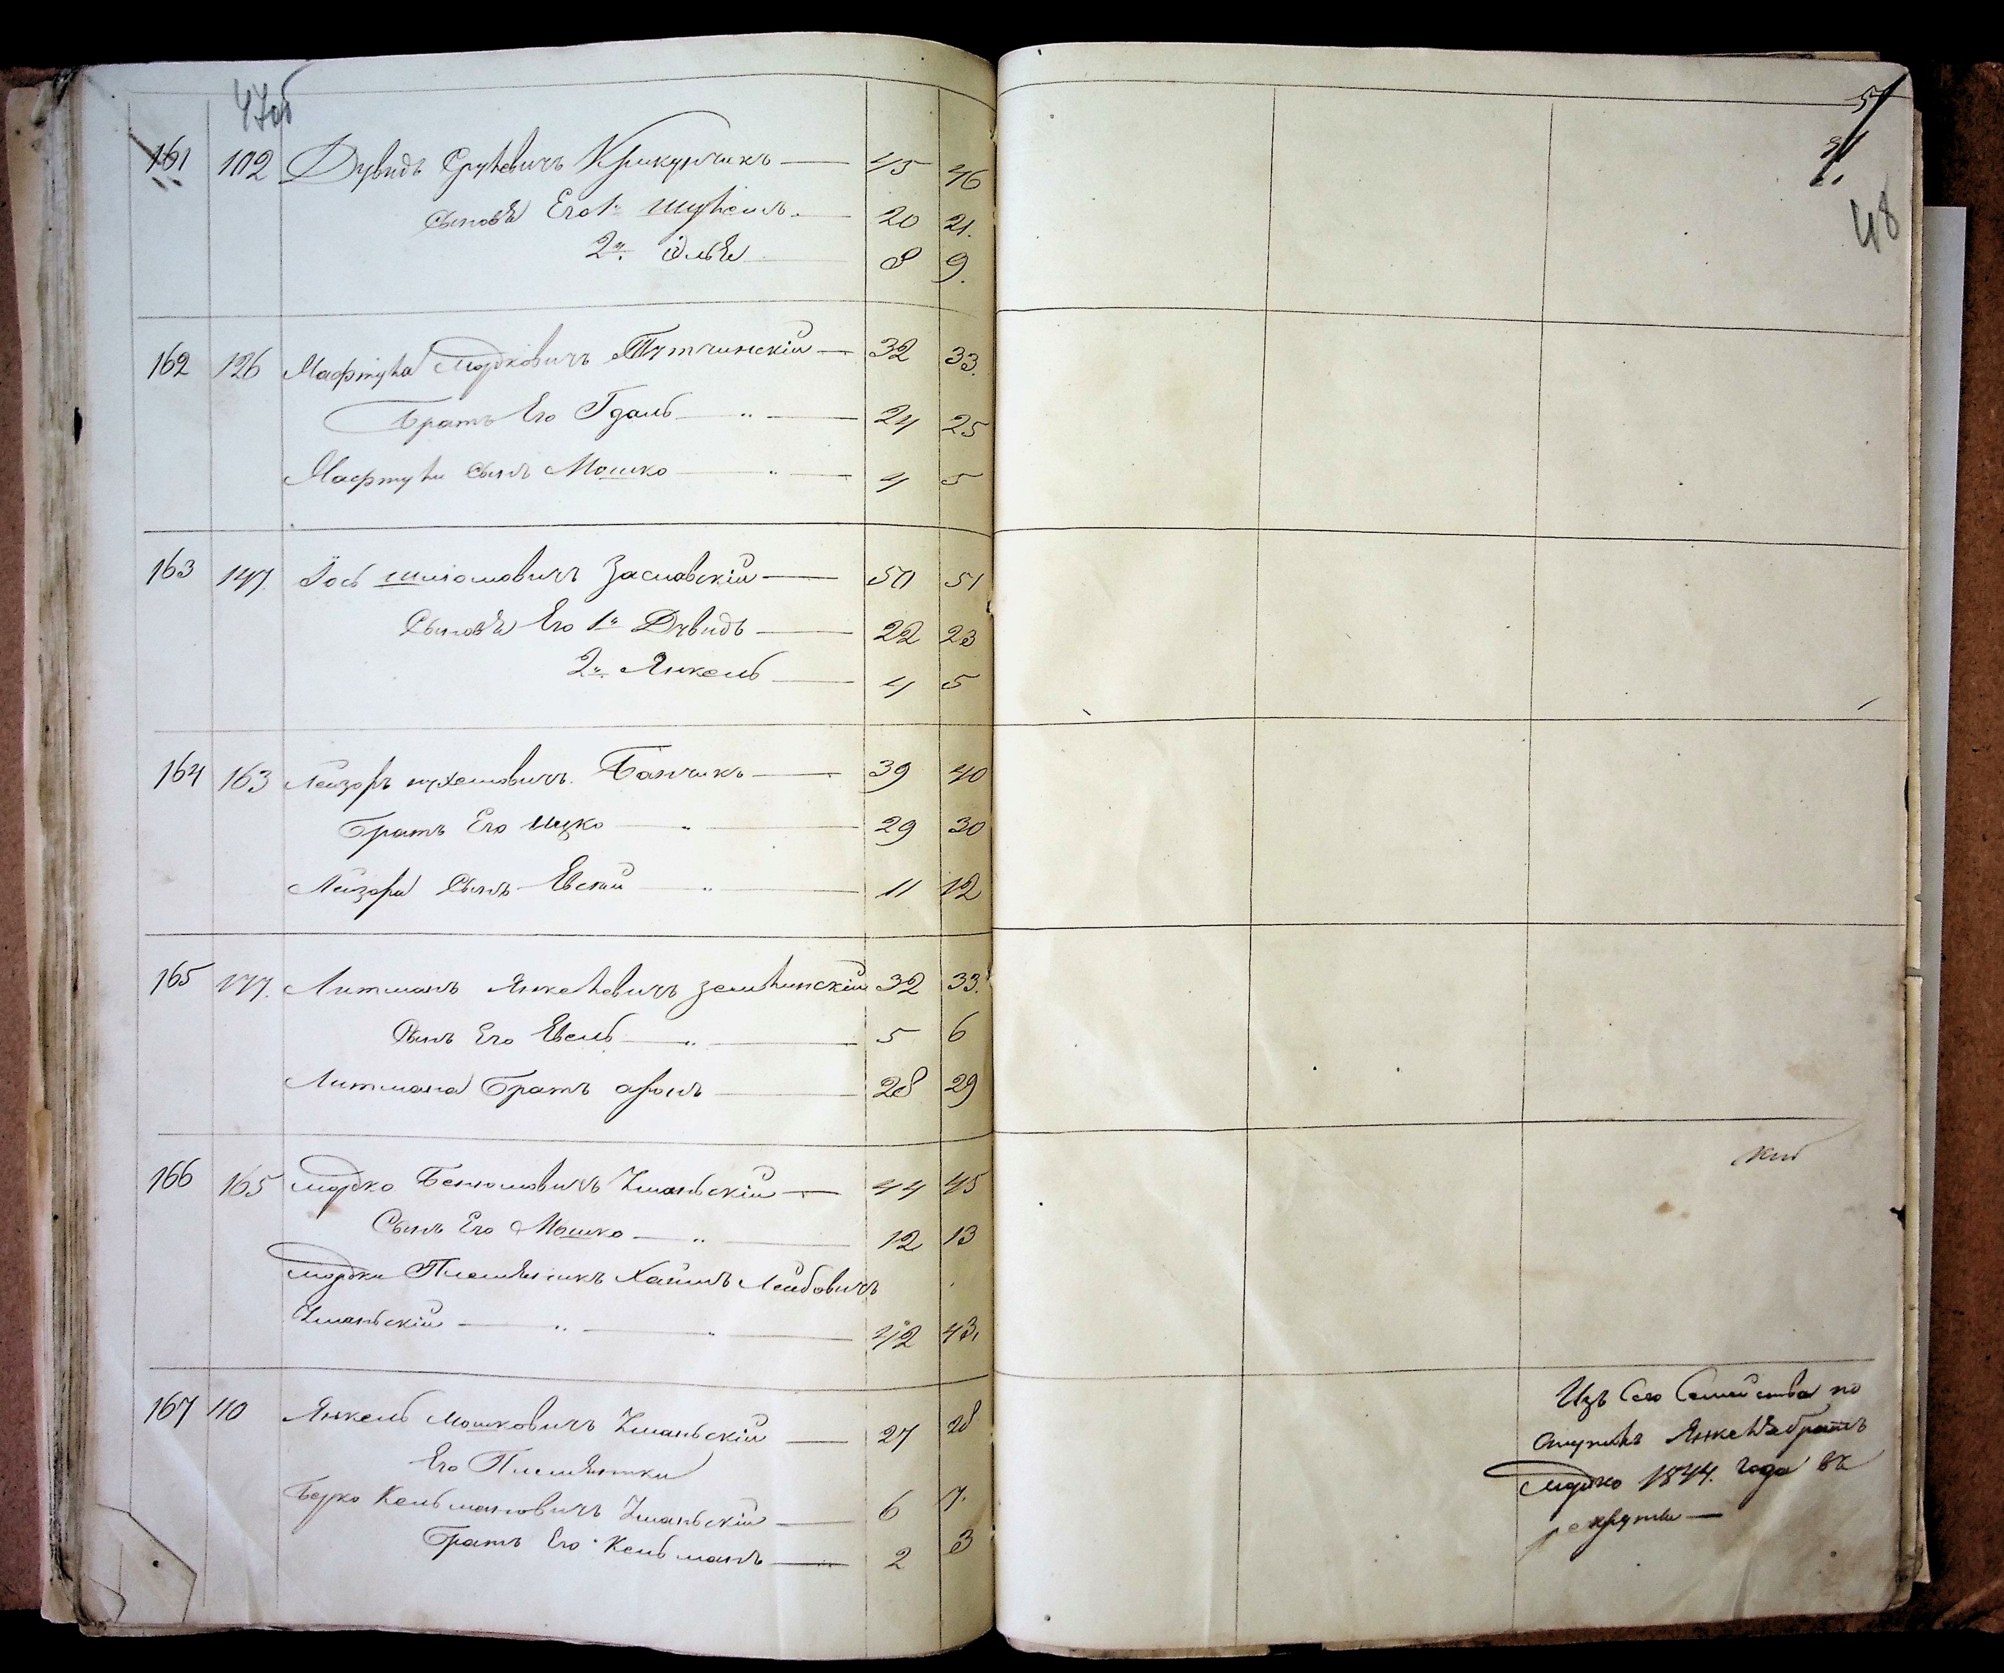 47об
161 102 Дувидъ Сруhевичъ Крикунчикъ — 45 46
Сыновѣя Его 1й Шуhелъ — 20 21.
2й Эльея — 8 9.
162 126 Мафтуhа Мордковичъ Тутчинскій — 32 33.
Братъ Его Гдаль — " — 24 25
Мафтуhи сынъ Мошко — " — 4 5
163 147. Іось Шліомовичъ Заславскій — 50 51
Сыновѣя Его 1й Дувидъ — 22 23
2й Янкель — 4 5
164 163 Лейзоръ Нухемовичъ Банчикъ — 39 40
Братъ Его Ицко — " — 29 30
Лейзора Сынъ — " — 11 12
165 177. Литманъ Янкеhевичъ Землинскій 32 33.
Сынъ Его Евель — " — 5 6
Литмана Братъ Аронъ — 28 29
166 165 Мордко Бенюмовичъ Уманьскій — 44 45
Сынъ Его Мошко — " — 12 13
Мордки Племянникъ Хаимъ Лейбовичъ
Уманьскій — " — " — 42 43.
167 110 Янкель Мошковичъ Уманьскій — 27 28
Его Племянники
Берко Кельмановичъ Уманьскій — 6 7.
Братъ Его Кельманъ — 2 3
48
Изъ Сего Семейства по
ступилъ Янкеля братъ
Мордко 1844. года въ
рекруты —